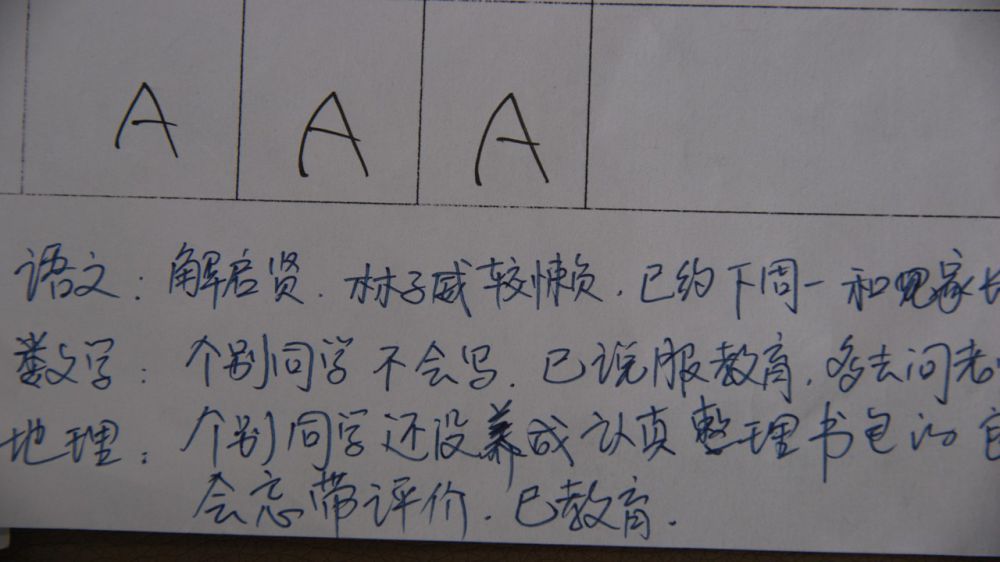 A A A
语文：解启贤.林子威较懒.已约下周一和家
数学：个别同学不会写.已说服教育.多去问老
地理：个别同学还没养成认真整理书包的
会忘带评价.已教育.